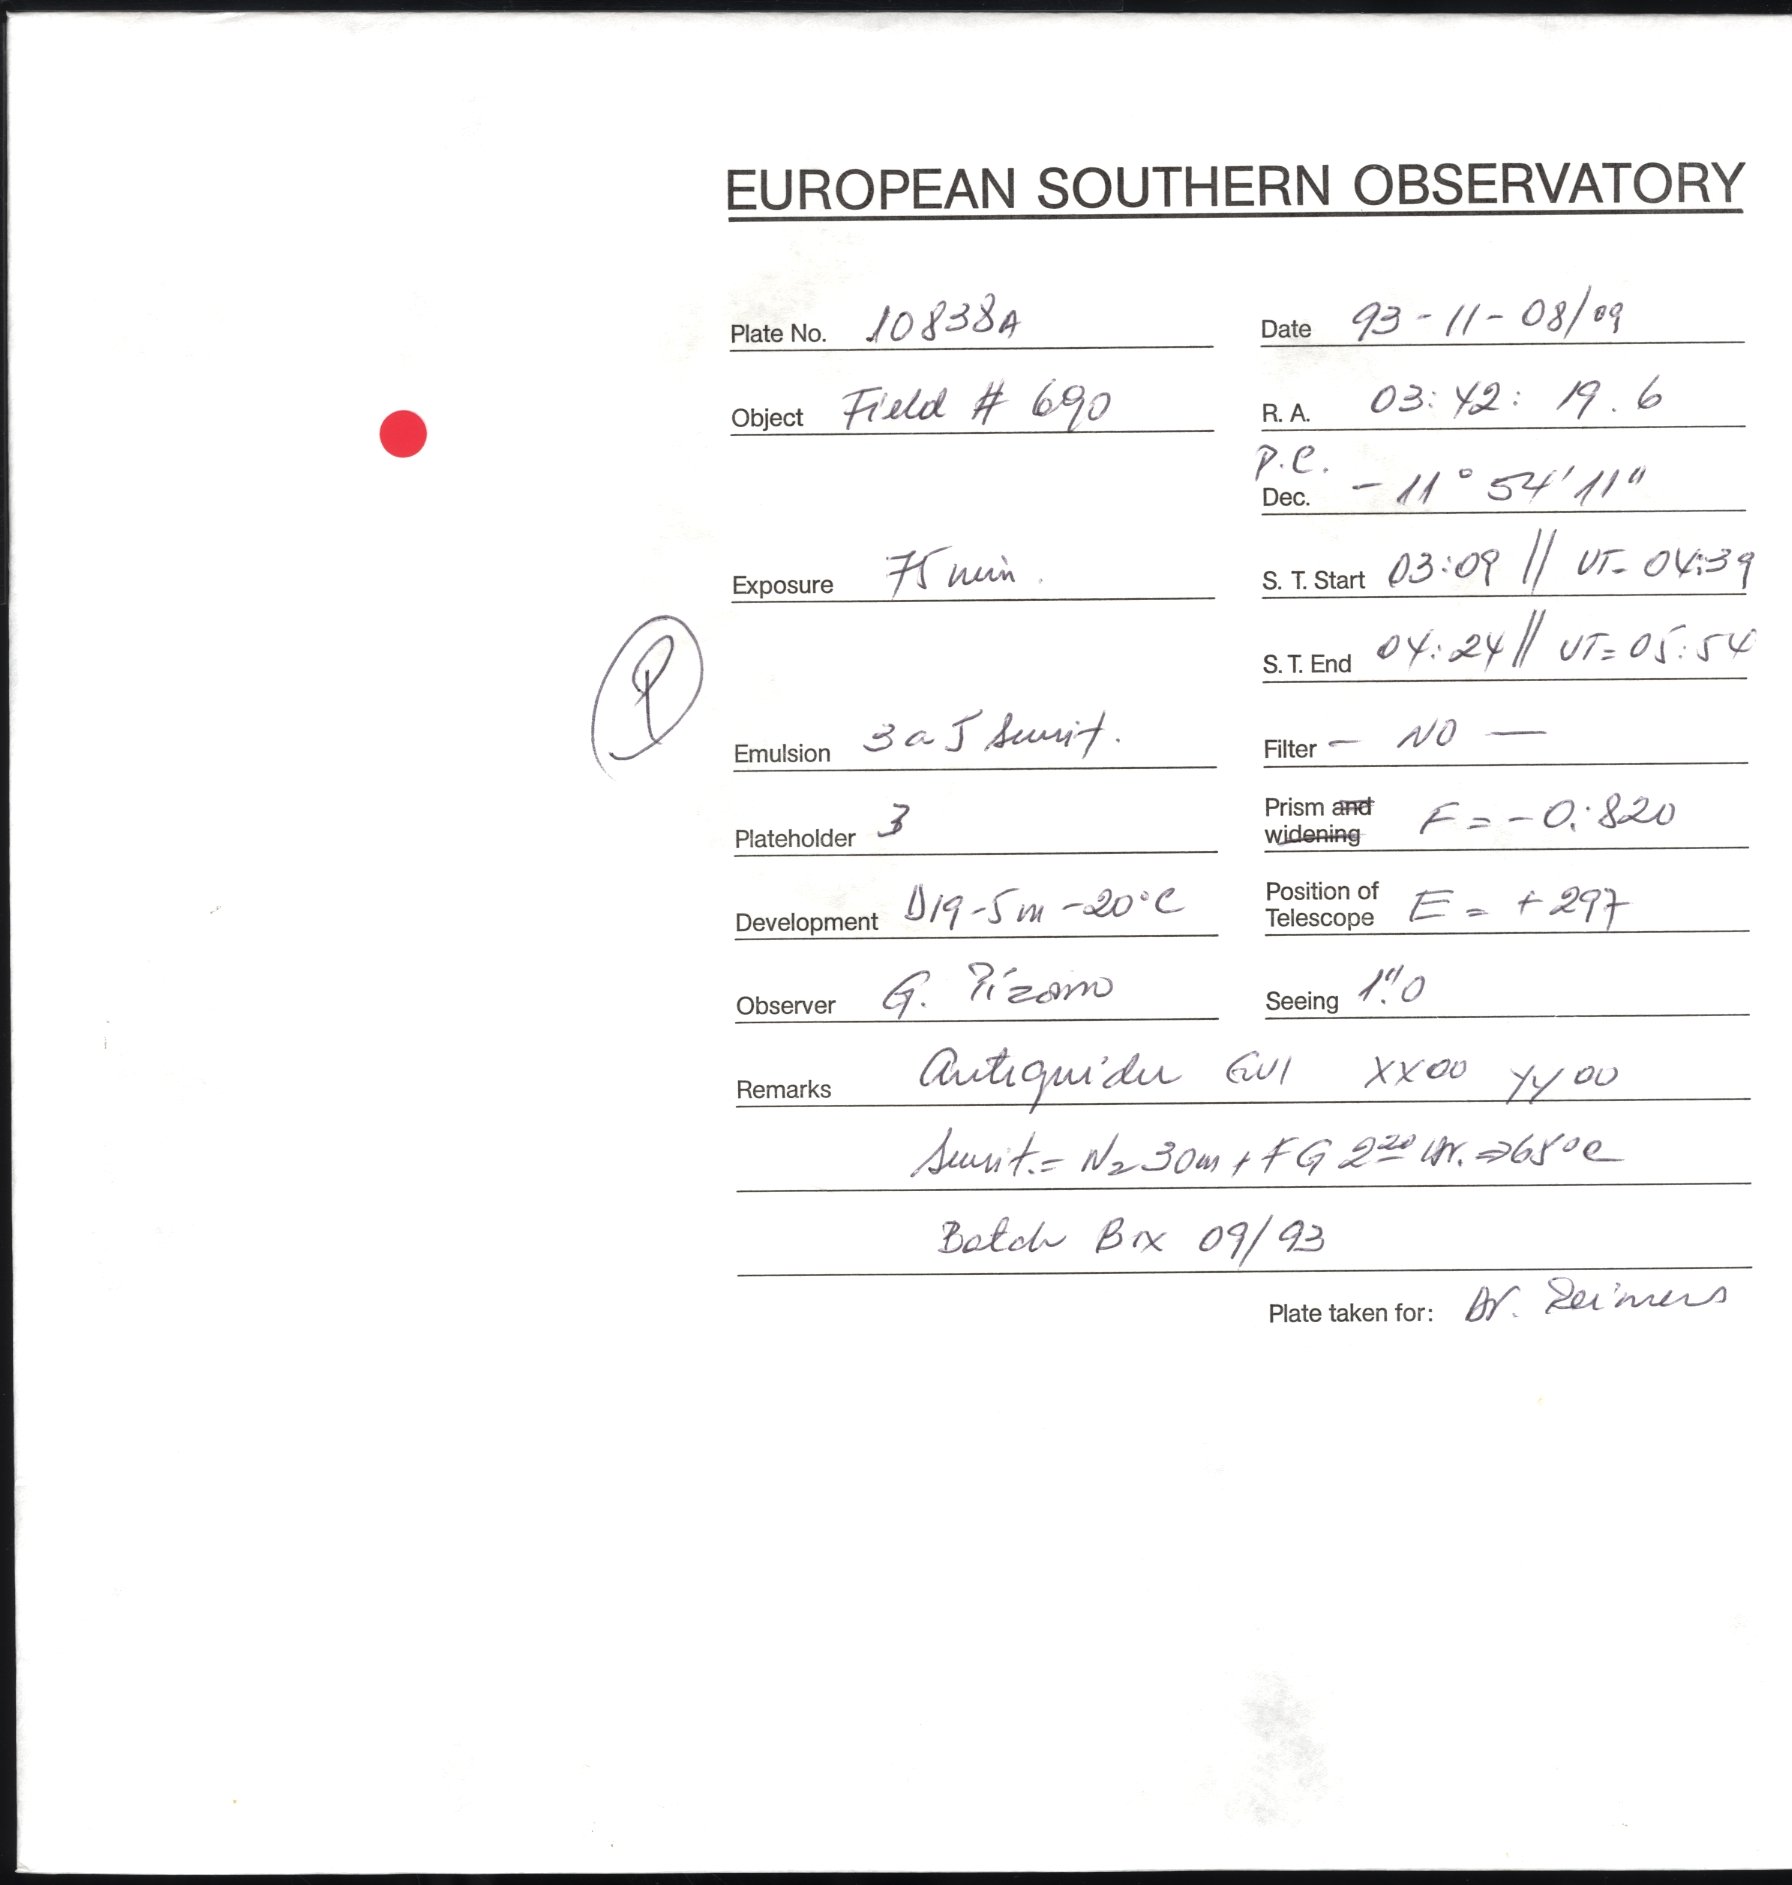 EUROPEAN SOUTHERN OBSERVATORY
Plate No. 10838A Date 93-11-08/09
Object Field # 690 R. A. 03:42:19.6
P.C.
Dec. -11° 54' 11"
Exposure 75 min. S. T. Start 03:09 // UT= 04:39
S. T. End 04:24 // UT= 05:54
P
Emulsion 3aJ Sensit. Filter - NO -
Plateholder 3 Prism and widening F = -0.820
Development D19-5m-20°C Position of Telescope E = +297
Observer G. Pizarro Seeing 1".0
Remarks Autoguider GV1 XX00 YY00
Sensit.= N2 30m + FG 2 20 Hr. => 65°C
Batch Box 09/93
Plate taken for: Dr. Reimers